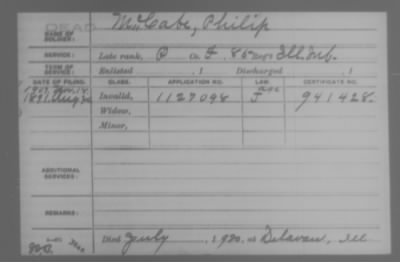 DEAD
NAME OF SOLDIER: McCabe, Philip
SERVICE: Late rank, P Co. F, 85 Reg't Ill. Inf.
TERM OF SERVICE: Enlisted , 1 Discharged , 1
DATE OF FILING. CLASS. APPLICATION NO. LAW. CERTIFICATE NO.
1907 18 age
1891 Aug Invalid, 1127098 J 941428.
Widow,
Minor,
ADDITIONAL SERVICES:
REMARKS:
Died July , 1920, at Delavan, Ill